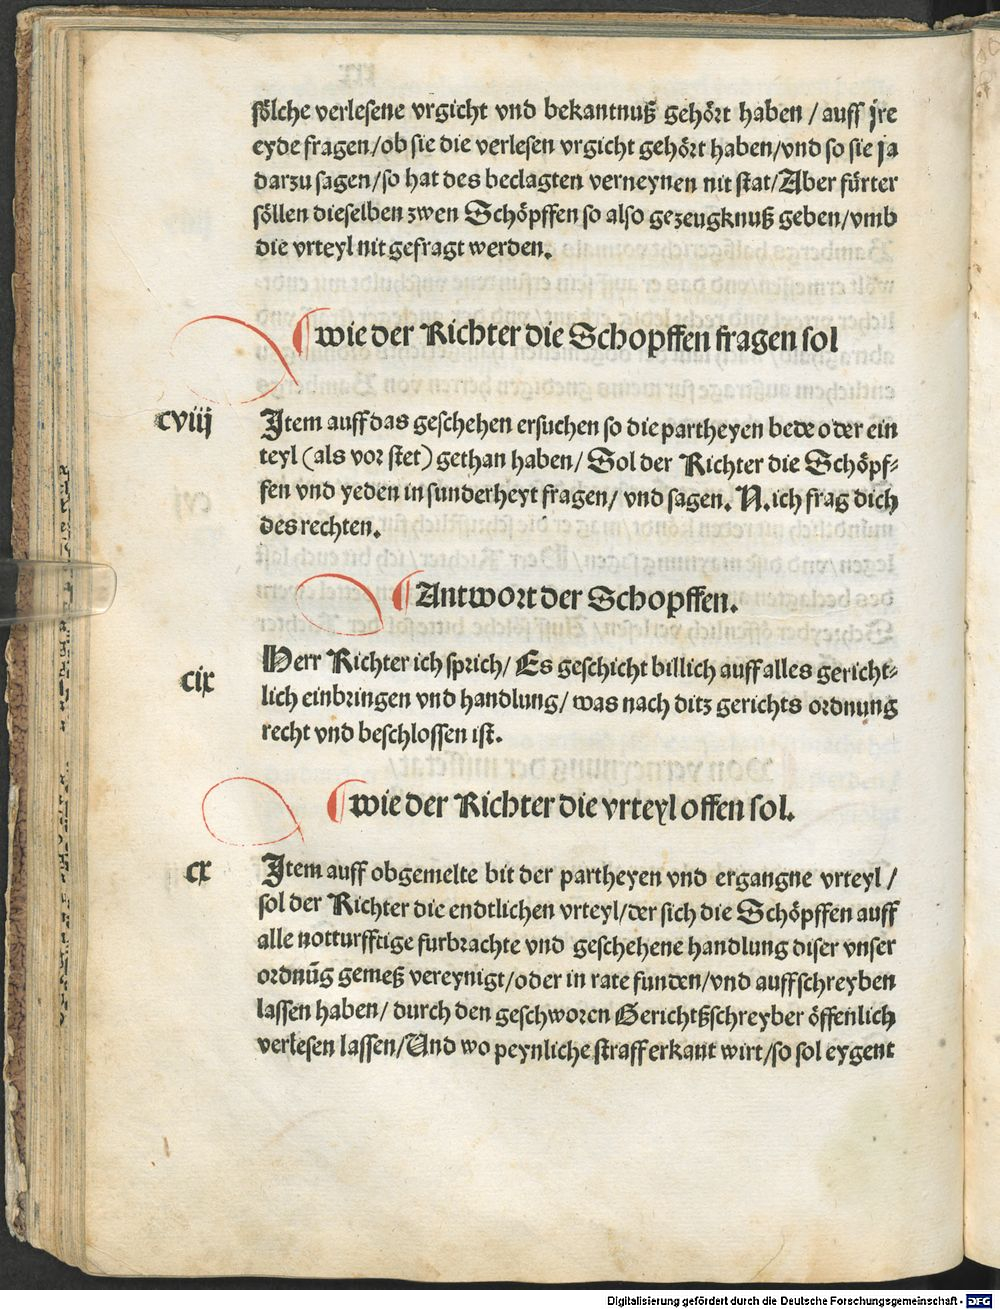 sölche verlesene vrgicht vnd bekantnuß gehört haben / auff jre
eyde fragen/ob sie die verlesen vrgicht gehört haben/vnd so sie ja
darzu sagen/so hat des beclagten verneynen nit stat/Aber fürter
söllen dieselben zwen Schöpffen so also gezeugknuß geben/vmb
die vrteyl nit gefragt werden.
¶ wie der Richter die Schopffen fragen sol
cviij
Item auff das geschehen ersuchen so die partheyen bede oder ein
teyl (als vor stet) gethan haben/ Sol der Richter die Schöpf-
fen vnd yeden in sunderheyt fragen/ vnd sagen. N. ich frag dich
des rechten.
¶ Antwort der Schopffen.
cix
Herr Richter ich sprich/ Es geschicht billich auff alles gericht-
lich einbringen vnd handlung/ was nach ditz gerichts ordnung
recht vnd beschlossen ist.
¶ wie der Richter die vrteyl offen sol.
cx
Item auff obgemelte bit der partheyen vnd ergangne vrteyl /
sol der Richter die endtlichen vrteyl/der sich die Schöpffen auff
alle notturfftige furbrachte vnd geschehene handlung diser vnser
ordnūg gemeß vereynigt/oder in rate funden/vnd auffschreyben
lassen haben/ durch den geschworen Gerichtßschreyber öffenlich
verlesen lassen/Und wo peynliche straff erkant wirt/so sol eygent
Digitalisierung gefördert durch die Deutsche Forschungsgemeinschaft - DFG